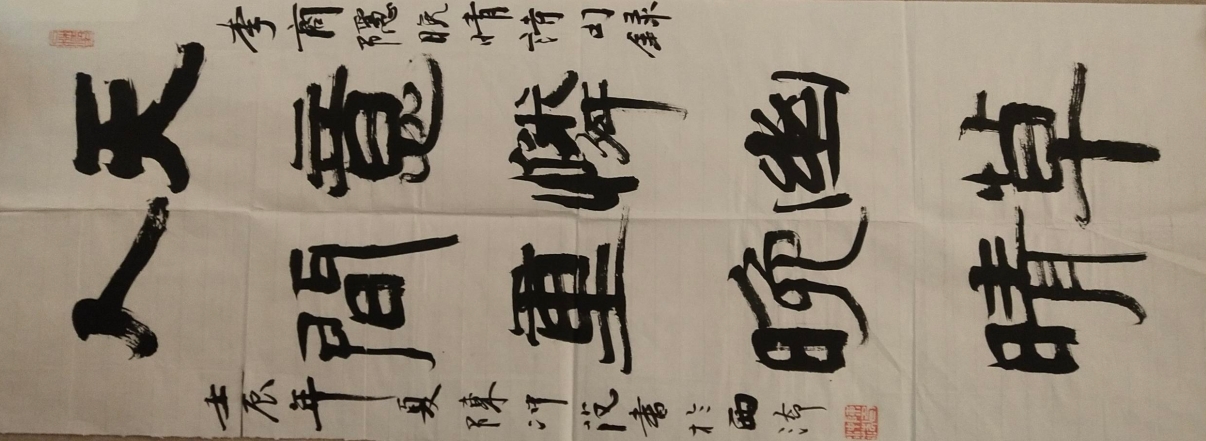 李商隱晚晴詩句錄
天意憐幽草
人間重晚晴
壬辰年夏陳冲書於西